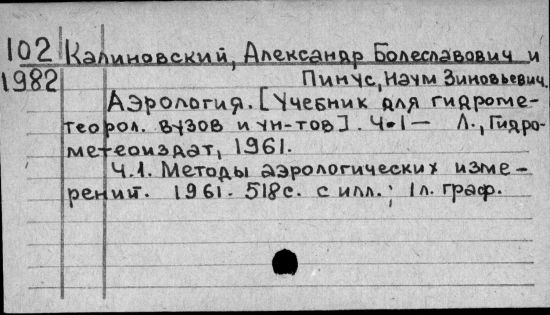 102 Калиновский, Александр Болеславович и
1982 Пинус, Наум Зиновьевич.
Аэрология. [Учебник для гидроме-
теорол. вузов и ун-тов]. Ч.1— Л., Гидро-
метеоиздат, 1961.
Ч.1. Методы аэрологических изме-
рений. 1961. 518с. с илл.; 1л. граф.